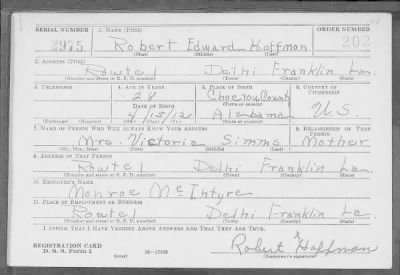 SERIAL NUMBER 1. NAME (Print) ORDER NUMBER
2975 Robert Edward Hoffman 202
(First) (Middle) (Last)
2. ADDRESS (Print)
Route 1 Delhi Franklin La.
(Number and street or R. F. D. number) (Town) (County) (State)
3. TELEPHONE 4. AGE IN YEARS 5. PLACE OF BIRTH 6. COUNTRY OF CITIZENSHIP
28 Choctaw County
DATE OF BIRTH
4/15/12 Alabama U.S.
(Mo.) (Day) (Yr.) (State or country)
7. NAME OF PERSON WHO WILL ALWAYS KNOW YOUR ADDRESS 8. RELATIONSHIP OF THAT PERSON
Mrs. Victoria Simms Mother
(Mr., Mrs., Miss) (First) (Middle) (Last)
9. ADDRESS OF THAT PERSON
Route 1 Delhi Franklin La
(Number and street or R. F. D. number) (Town) (County) (State)
10. EMPLOYER'S NAME
Monroe McIntyre
11. PLACE OF EMPLOYMENT OR BUSINESS
Route 1 Delhi Franklin La
(Number and street or R. F. D. number) (Town) (County) (State)
I AFFIRM THAT I HAVE VERIFIED ABOVE ANSWERS AND THAT THEY ARE TRUE.
REGISTRATION CARD
D. S. S. Form 1 x
Robert Hoffman
(Registrant's signature)